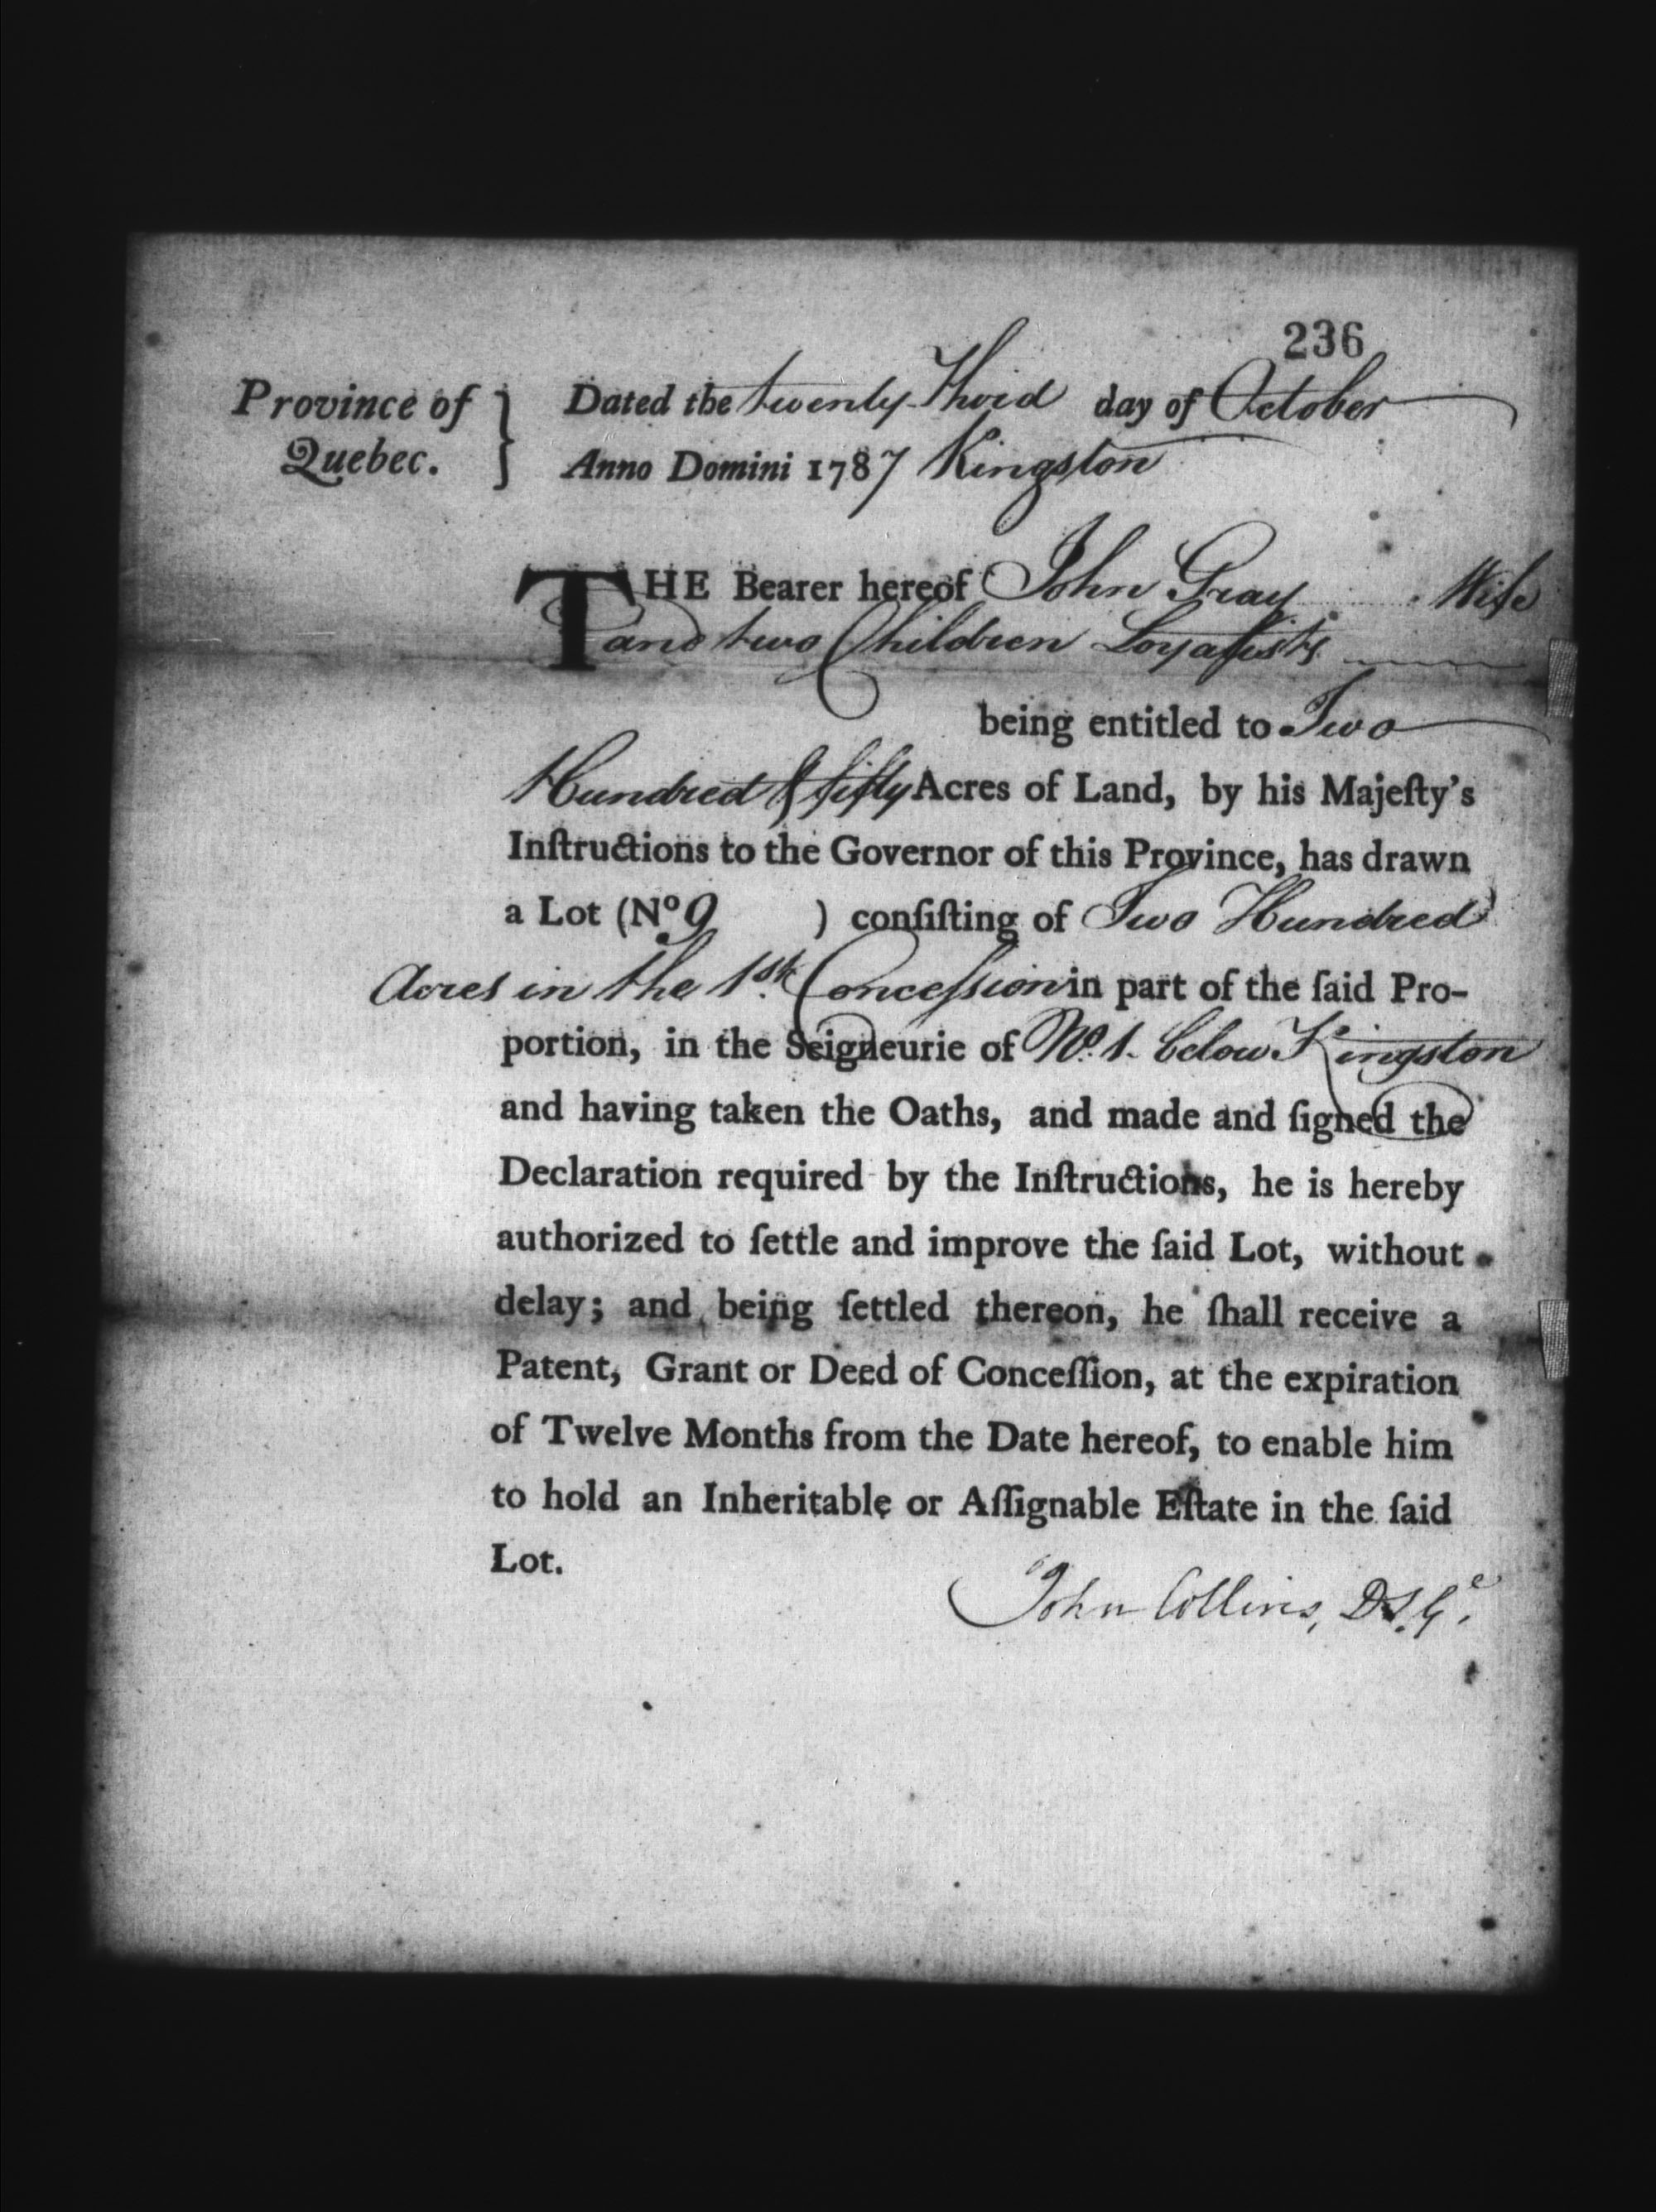 236
Province of Quebec. } Dated the twenty Third day of October
Anno Domini 1787 Kingston
THE Bearer hereof John Gray Wife
and two Children Loyalists
being entitled to Two
Hundred & fifty Acres of Land, by his Majeſty's
Inſtructions to the Governor of this Province, has drawn
a Lot (No 9 ) conſiſting of Two Hundred
Acres in the 1st. Conceſsion in part of the ſaid Pro-
portion, in the Seigneurie of No. 1. below Kingston
and having taken the Oaths, and made and ſigned the
Declaration required by the Inſtructions, he is hereby
authorized to ſettle and improve the ſaid Lot, without
delay; and being ſettled thereon, he ſhall receive a
Patent, Grant or Deed of Conceſſion, at the expiration
of Twelve Months from the Date hereof, to enable him
to hold an Inheritable or Aſſignable Eſtate in the ſaid
Lot.
John Collins, D.S.Ge.